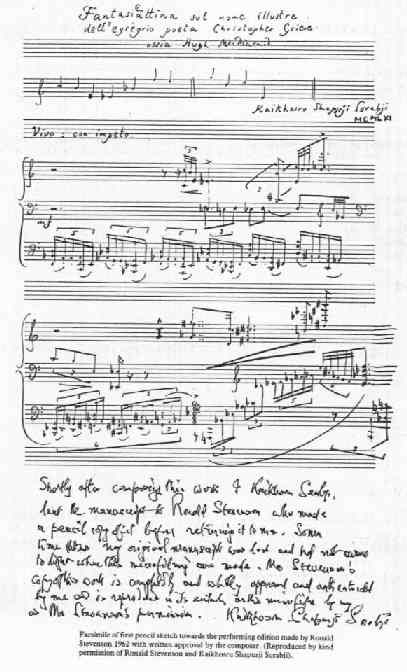 Fantasiettina sul nome illustre
dell'egregio poeta Christopher Grieve
ossia Hugh McDiarmid
Kaikhosru Shapurji Sorabji
MCMLXI
Vivo: con impeto.
mf
5 5 5 5
3
3
3 3
6 6
5
3
Shortly after composing this work I Kaikhosru Sorabji,
lent the manuscript to Ronald Stevenson who made
a pencil copy of it before returning it to me. Some
time later my original manuscript was lost and
microfilms were made. Mr Stevenson's
copy of this work is completely and wholly approved and authenticated
by me and is reproduced
Mr Stevenson's permission. Kaikhosru Shapurji Sorabji
Facsimile of first pencil sketch towards the performing edition made by Ronald
Stevenson 1962 with written approval by the composer. (Reproduced by kind
permission of Ronald Stevenson and Kaikhosru Shapurji Sorabji).